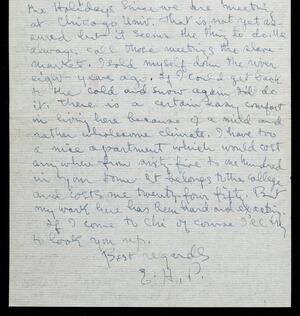 the Holidays since we are meeting
at Chicago Univ. That is not yet as
sured but it seems the thing to do. We
always call those meetings the slave
market. I sold myself down the river
eight years ago. If I could get back
to the cold and snow again I'd do
it. There is a certain easy comfort
in living here because of a mild and
rather wholesome climate. I have too
a nice apartment which would cost
anywhere from sixty five to one hundred
in your town. It belongs to the College
and costs me twenty four fifty. But
my work here has been hard and exacting.
If I come to Chi of course I'll try
to look you up.
Best regards
E. H. P.